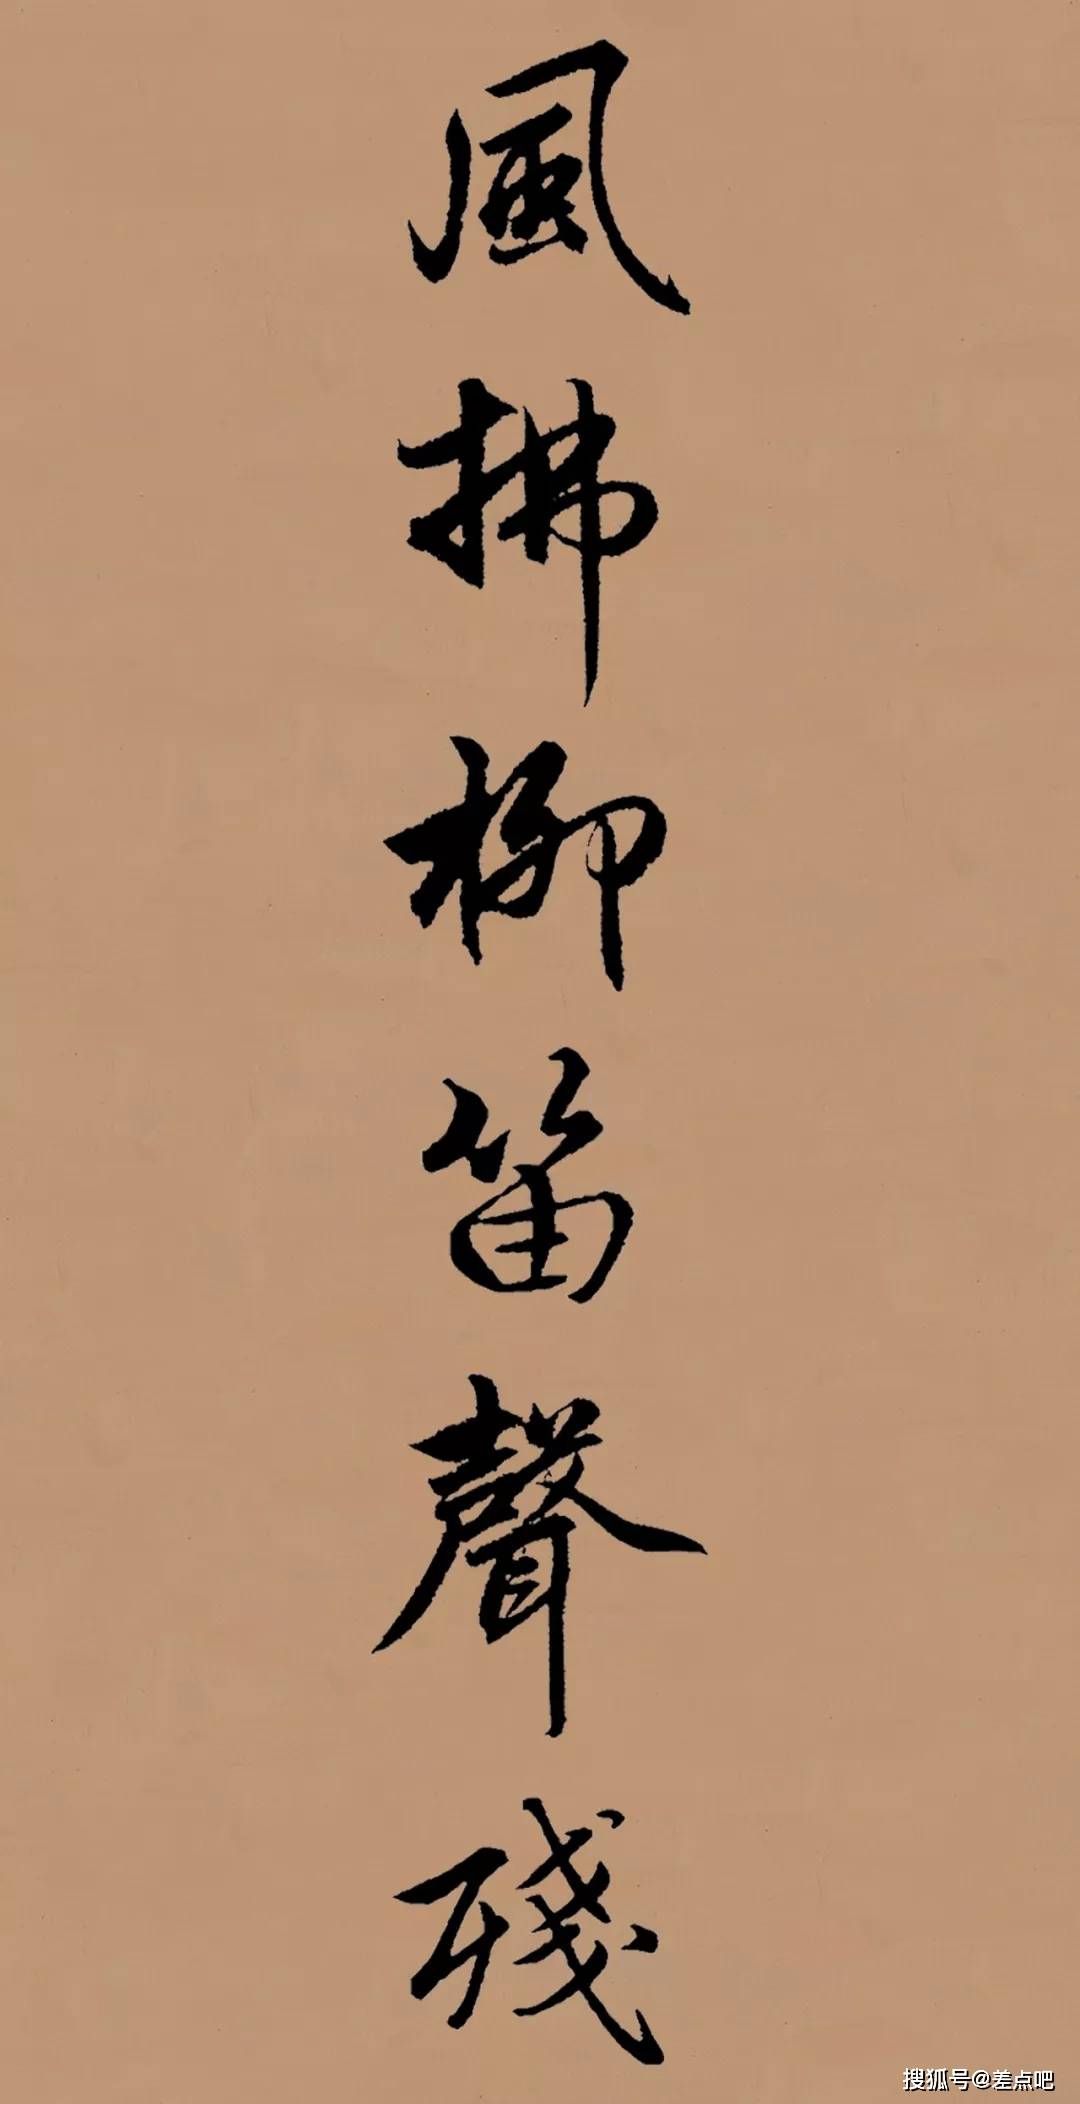 風拂柳笛聲殘
搜狐号@差点吧